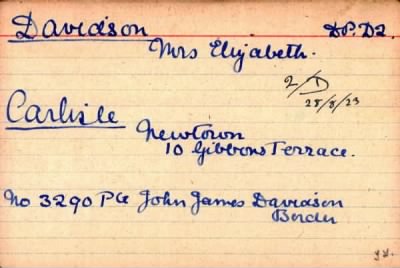 Davidson D.P. D2.
Mrs Elizabeth.
2/D
25/8/23
Carlisle
Newtown
10 Gibbons Terrace.
No 3290 Pte John James Davidson
Border